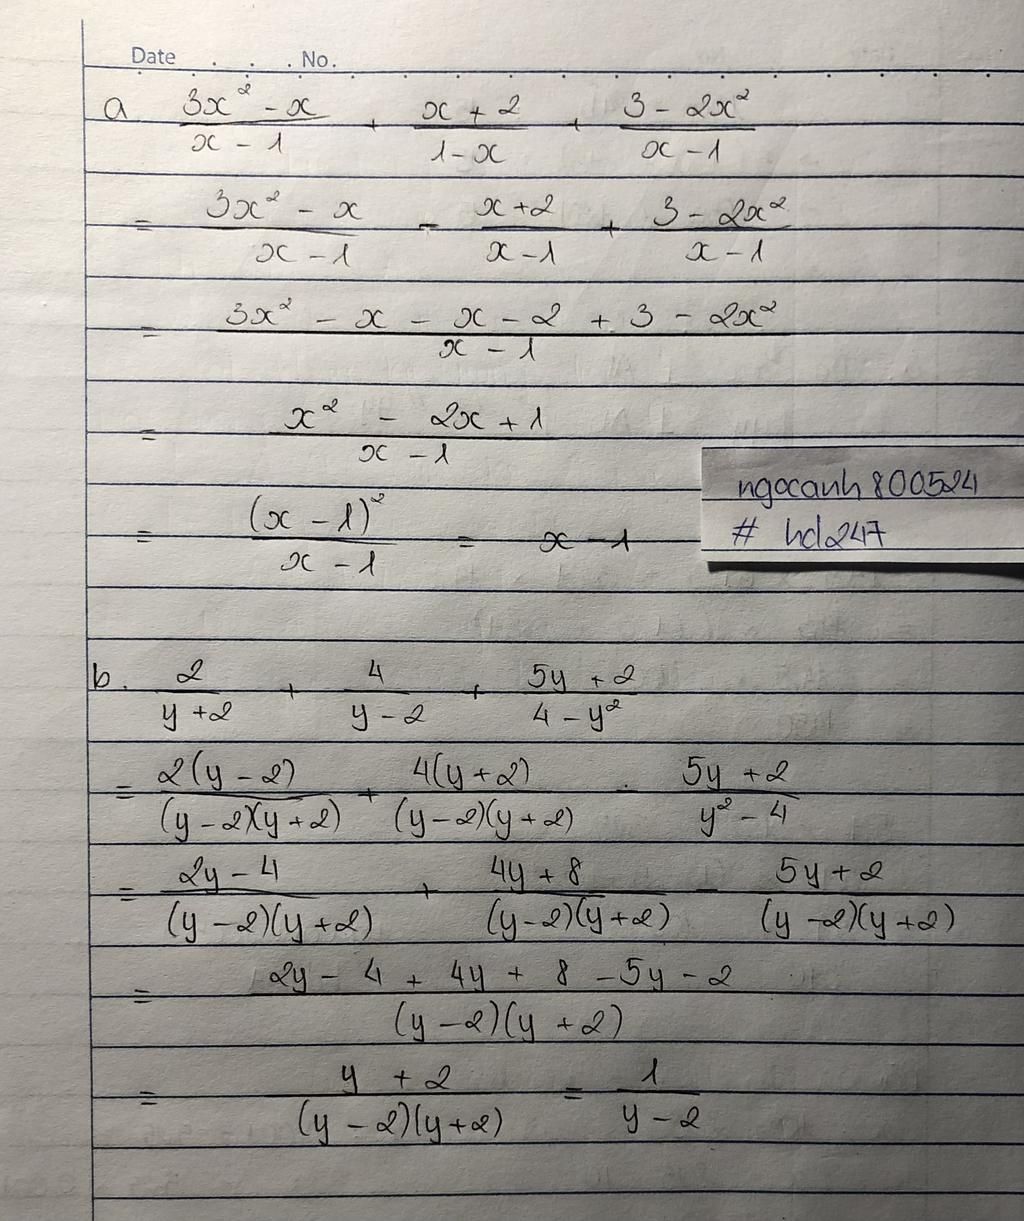 Date . . . No.
a. \frac{3x^2 - x}{x - 1} + \frac{x + 2}{1 - x} + \frac{3 - 2x^2}{x - 1}
= \frac{3x^2 - x}{x - 1} - \frac{x + 2}{x - 1} + \frac{3 - 2x^2}{x - 1}
= \frac{3x^2 - x - x - 2 + 3 - 2x^2}{x - 1}
= \frac{x^2 - 2x + 1}{x - 1}
= \frac{(x - 1)^2}{x - 1} = x - 1
ngocanh800524
# hd247
b. \frac{2}{y + 2} + \frac{4}{y - 2} + \frac{5y + 2}{4 - y^2}
= \frac{2(y - 2)}{(y - 2)(y + 2)} + \frac{4(y + 2)}{(y - 2)(y + 2)} - \frac{5y + 2}{y^2 - 4}
= \frac{2y - 4}{(y - 2)(y + 2)} + \frac{4y + 8}{(y - 2)(y + 2)} - \frac{5y + 2}{(y - 2)(y + 2)}
= \frac{2y - 4 + 4y + 8 - 5y - 2}{(y - 2)(y + 2)}
= \frac{y + 2}{(y - 2)(y + 2)} = \frac{1}{y - 2}